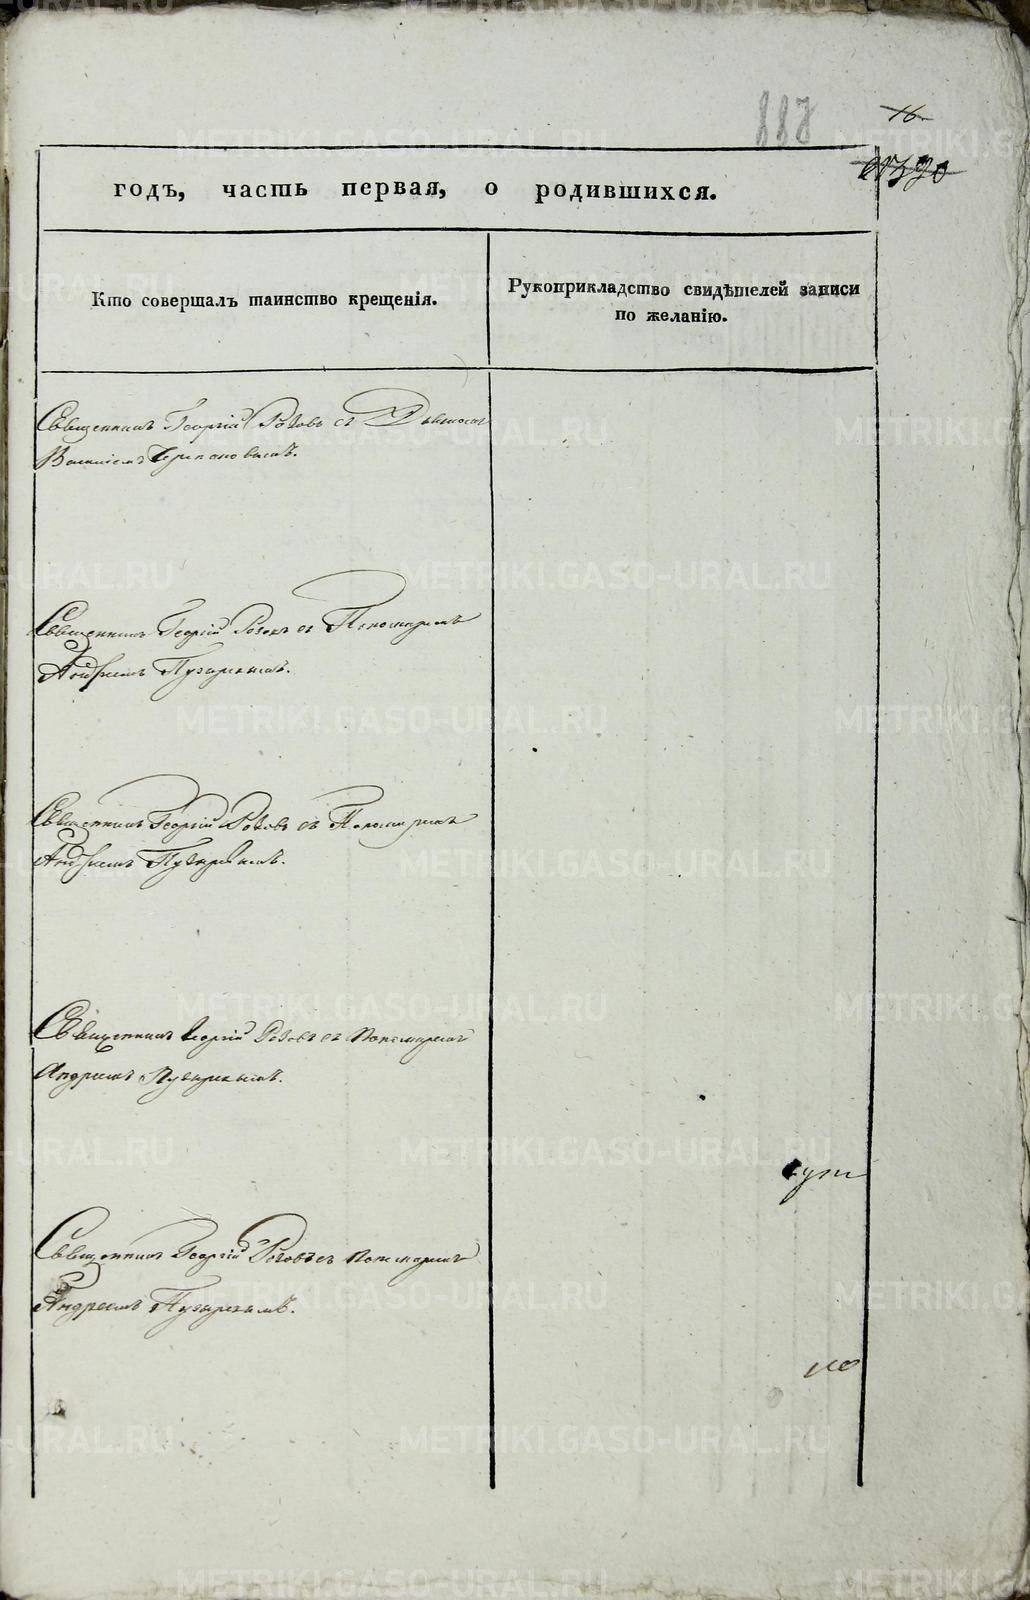 888
16
годъ, часть первая, о родившихся.
Кто совершалъ таинство крещенія.
Рукоприкладство свидѣтелей записи
по желанію.
Священникъ Георгій Роговъ съ Дьякомъ
Василіемъ
Священникъ Георгій Роговъ съ Пономаремъ
Андреемъ Пузыревымъ.
Священникъ Георгій Роговъ съ Пономаремъ
Андреемъ Пузыревымъ.
Священникъ Георгій Роговъ съ Пономаремъ
Андреемъ Пузыревымъ.
Священникъ Георгій Роговъ съ Пономаремъ
Андреемъ Пузыревымъ.
METRIKI.GASO-URAL.RU